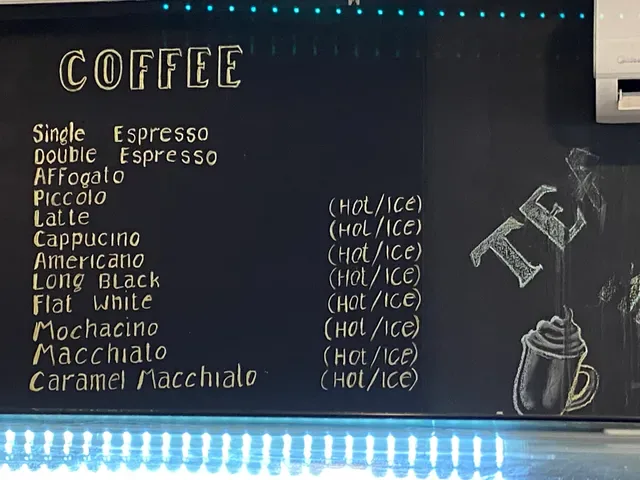 COFFEE
Single Espresso
Double Espresso
Affogato
Piccolo
Latte (Hot/Ice)
Cappucino (Hot/Ice)
Americano (Hot/Ice)
Long Black (Hot/Ice)
Flat White (Hot/Ice)
Mochacino (Hot/Ice)
Macchiato (Hot/Ice)
Caramel Macchiato (Hot/Ice)
TEA